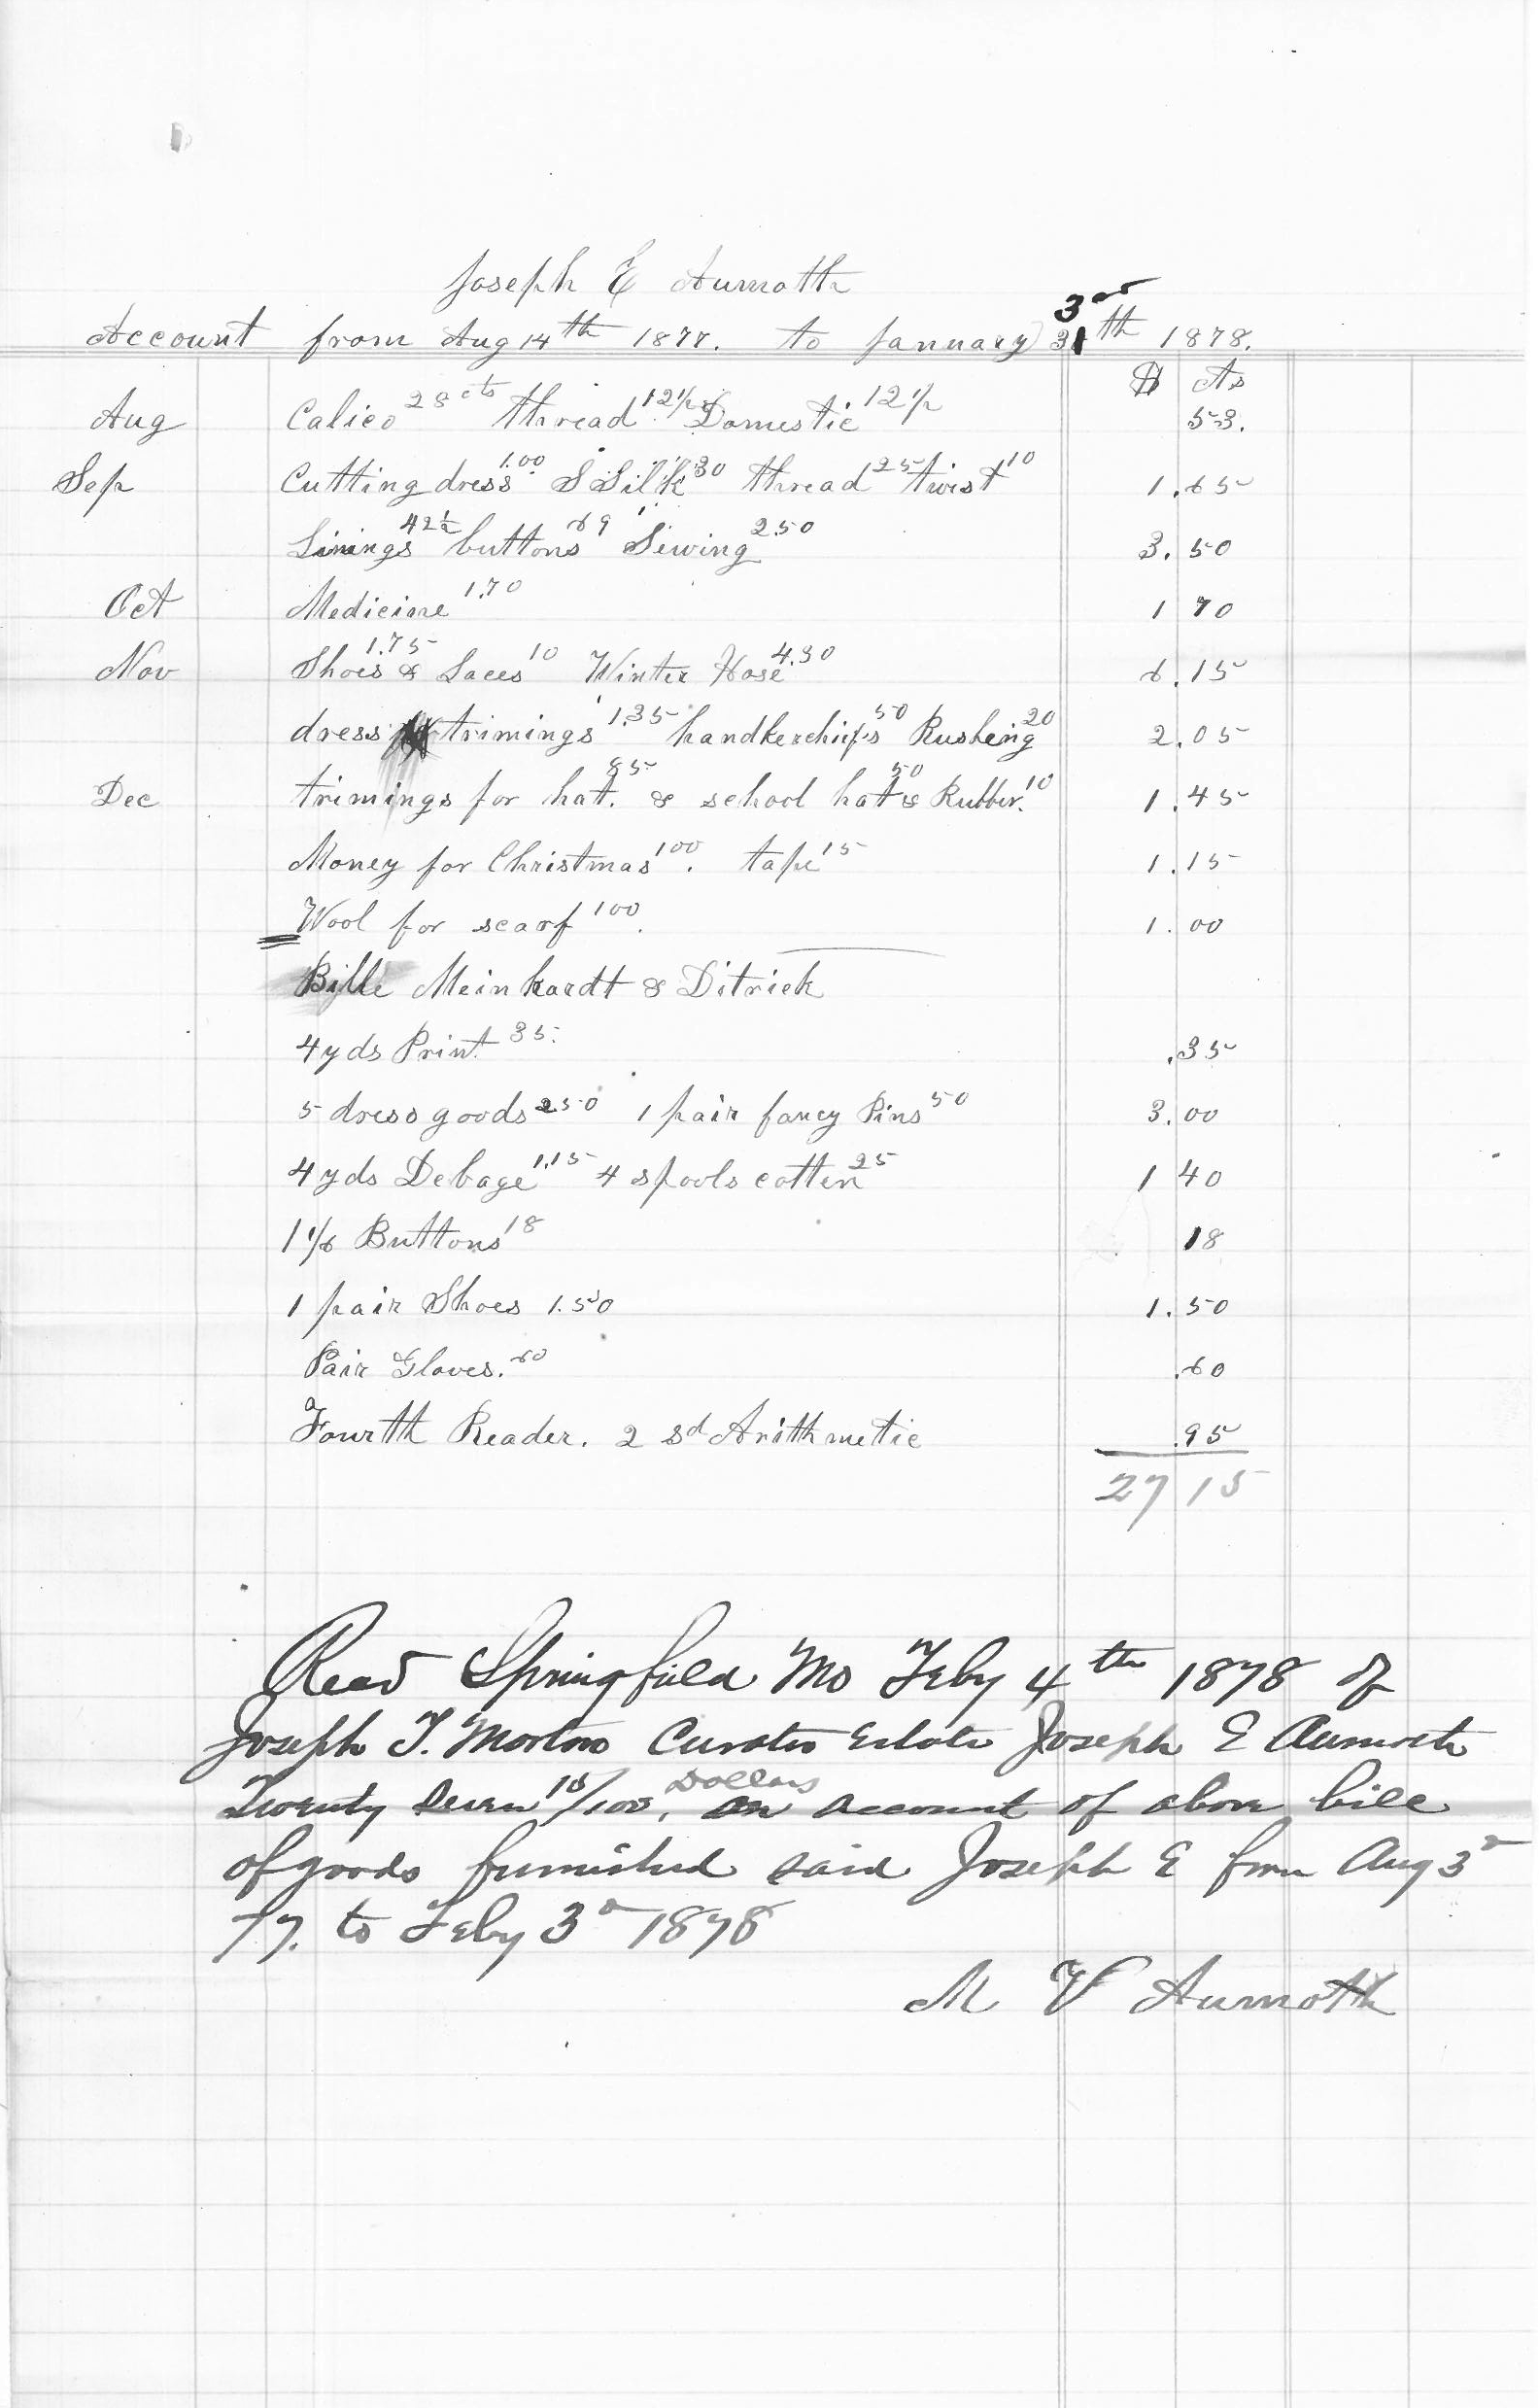 Joseph E Aumoth
3rd
Account from Aug 14th 1877. to January 31th 1878.
$ cts
Aug Calico 28cts thread 12½ Domestic 12½ 53.
Sep Cutting dress 1.00 S Silk 30 thread 25 twist 10 1.65
Linings 42½ buttons 69 Sewing 2.50 3.50
Oct Medicine 1.70 1 70
Nov Shoes 1.75 & Laces 10 Winter Hose 4.30 6.15
dress trimings 1.35 handkerchifs 50 Rusheing 20 2.05
Dec trimings for hat. 85 & school hat 50 & Rubber. 10 1.45
Money for Christmas 100. tape 15 1.15
Wool for scarf 100. 1.00
Bille Meinhardt & Ditrick
4 yds Print 35. .35
5 dress goods 250 1 pair fancy Pins 50 3.00
4 yds Debage 1.15 4 spools cotten 25 1 40
1 1/6 Buttons 18 18
1 pair Shoes 1.50 1.50
Pair Gloves. 60 .60
a
Fourth Reader. 2 sd Arithmetic .95
27 15
Recd Springfield Mo Feby 4th 1878 of
Joseph T. Morton Curator Estate Joseph E Aumoth
Dollars
Twenty Seven 15/100, on account of above bill
of goods furnished said Joseph E from Aug 3d
77. to Feby 3d 1878
M V Aumoth